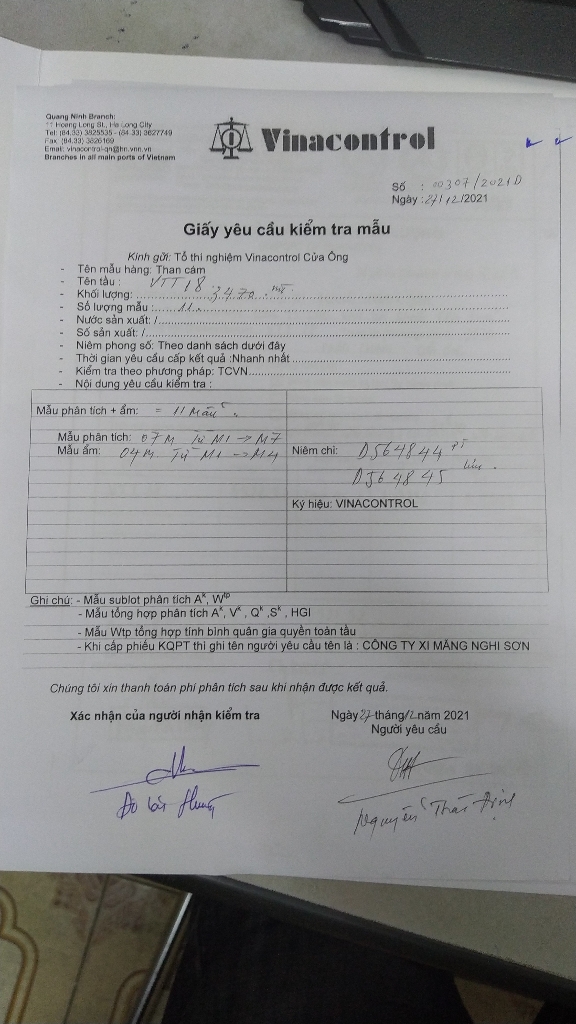 Quang Ninh Branch:
11 Hoang Long St., Ha Long City
Tel: (84.33) 3825535 - (84.33) 3627749
Fax: (84.33) 3826169
Email: vinacontrol-qn@hn.vnn.vn
Branches in all main ports of Vietnam
Vinacontrol
Số : 00307/2021D
Ngày : 27/12/2021
Giấy yêu cầu kiểm tra mẫu
Kính gửi: Tổ thí nghiệm Vinacontrol Cửa Ông
- Tên mẫu hàng: Than cám
- Tên tàu : VTT 18
- Khối lượng: 3.470
- Số lượng mẫu : 11
- Nước sản xuất: /
- Số sản xuất: /
- Niêm phong số: Theo danh sách dưới đây
- Thời gian yêu cầu cấp kết quả :Nhanh nhất
- Kiểm tra theo phương pháp: TCVN
- Nội dung yêu cầu kiểm tra :
Mẫu phân tích + ẩm: = 11 Mẫu
Mẫu phân tích: 07M Từ M1 -> M7
Mẫu ẩm: 04M Từ M1 -> M4
Niêm chì: D564844 PT
D564845 lưu.
Ký hiệu: VINACONTROL
Ghi chú: - Mẫu sublot phân tích Aᵏ, Wᵗᵖ
- Mẫu tổng hợp phân tích Aᵏ, Vᵏ , Qᵏ ,Sᵏ , HGI
- Mẫu Wtp tổng hợp tính bình quân gia quyền toàn tàu
- Khi cấp phiếu KQPT thì ghi tên người yêu cầu tên là : CÔNG TY XI MĂNG NGHI SƠN
Chúng tôi xin thanh toán phí phân tích sau khi nhận được kết quả.
Xác nhận của người nhận kiểm tra
Ngày 27 tháng 12 năm 2021
Người yêu cầu
Nguyễn Thái Định